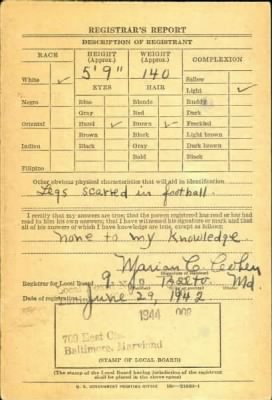 REGISTRAR'S REPORT
DESCRIPTION OF REGISTRANT
RACE HEIGHT (Approx.) WEIGHT (Approx.) COMPLEXION
5' 9" 140
White ✓ Sallow
EYES HAIR Light ✓
Negro Blue Blonde Ruddy
Gray Red Dark
Oriental Hazel ✓ Brown ✓ Freckled
Brown Black Light brown
Indian Black Gray Dark brown
Bald Black
Filipino
Other obvious physical characteristics that will aid in identification
Legs scarred in football.
I certify that my answers are true; that the person registered has read or has had
read to him his own answers; that I have witnessed his signature or mark and that
all of his answers of which I have knowledge are true, except as follows:
None to my knowledge
Marian C. Cohen
Registrar for Local Board 9 Balto Md.
Date of registration June 29, 1942
1944
709 East
Baltimore, Maryland
(STAMP OF LOCAL BOARD)
(The stamp of the Local Board having jurisdiction of the registrant
shall be placed in the above space)
U. S. GOVERNMENT PRINTING OFFICE